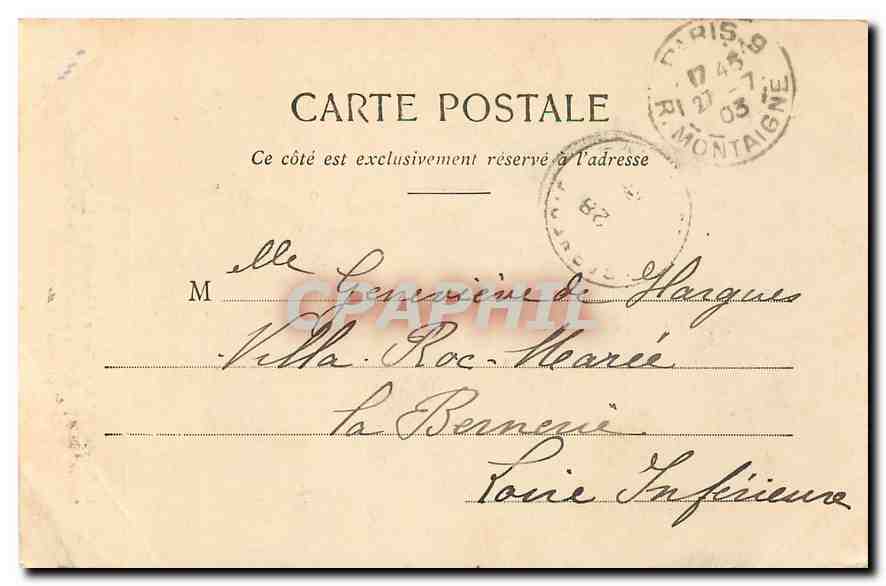 PARIS.9
17 45
27 - 7
03
R. MONTAIGNE
CARTE POSTALE
Ce côté est exclusivement réservé à l'adresse
28
Melle Geneviève de Hargues
CPAPHIL
Villa. Roc-Marée
la Bernerie
Loire Inférieure